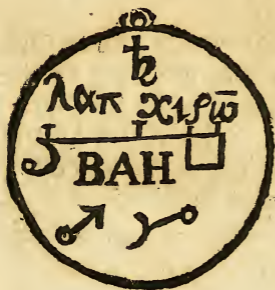 ♄
λαπ χιρω̄
BAH